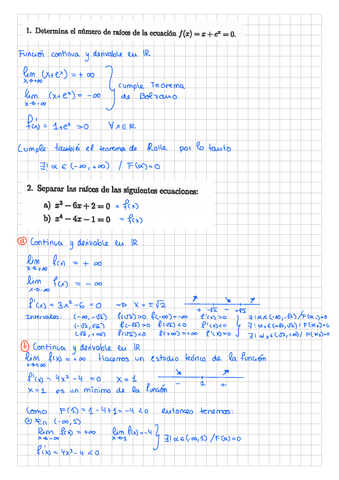 1. Determina el número de raíces de la ecuación f(x) = x + eˣ = 0.
Función continua y derivable en IR
lim (x+eˣ) = +∞
x→+∞
cumple Teorema
de Bolzano
lim (x+eˣ) = -∞
x→-∞
f'(x) = 1+eˣ >0 ∀x∈IR
Cumple también el teorema de Rolle por lo tanto
∃! α ∈ (-∞, +∞) / F(α)=0
2. Separar las raíces de las siguientes ecuaciones:
a) x³ − 6x + 2 = 0 = f(x)
b) x⁴ − 4x − 1 = 0 = f(x)
ⓐ Continua y derivable en IR
lim f(x) = +∞
x→+∞
lim f(x) = -∞
x→-∞
f'(x) = 3x²-6 = 0 ⇒ x = ±√2
+ -√2 - +√2
Intervalos: (-∞, -√2) f(-√2)>0 f(-∞)=-∞ f'(x)>0 ∃! α₁∈(-∞,-√2)/F(α₁)=0
(-√2, √2) f(-√2)>0 f(√2)<0 f'(x)<0 ∃! α₂∈(-√2,√2)/F(α₂)=0
(√2, +∞) f(√2)<0 f(+∞)=+∞ f'(x)>0 ∃! α₃∈(√2,+∞)/F(α₃)=0
ⓑ Continua y derivable en IR
lim f(x) = +∞ Hacemos un estudio teórico de la función
x→±∞
f'(x) = 4x³-4 = 0 x = 1
- 1 +
x = 1 es un mínimo de la función
Como F(1) = 1-4-1 = -4 <0 entonces tenemos:
En (-∞, 1)
lim f(x) = +∞ lim f(x) = -4
x→-∞ x→1
∃! α∈(-∞,1) / F(α)=0
f'(x) = 4x³-4 <0